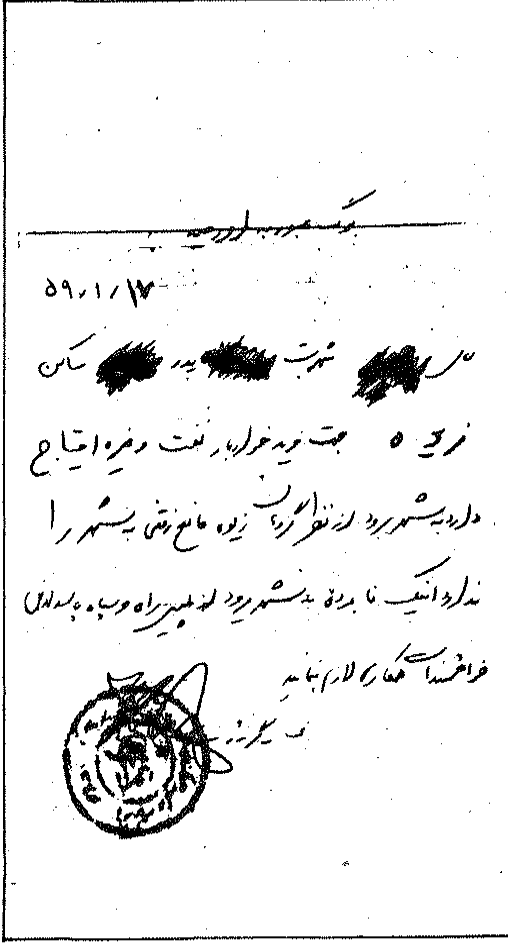 برگ عبور به ارومیه
۵۹/۱/۱۷
نام شهرت پدر ساکن
قریه جهت خرید خواربار نفت و غیره احتیاج
دارد به شهر برود از نظر گردان زیوه مانع رفتن به شهر را
ندارد اینک نامبرده به شهر میرود از پلیس راه و سپاه پاسداران
خواهشمند است همکاری لازم بنمایید